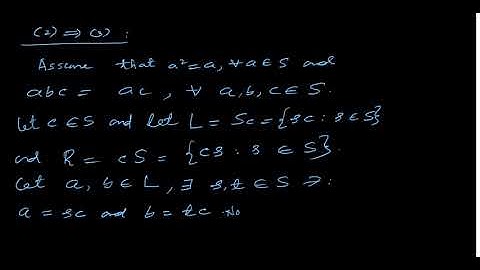 (2) ⇒ (3) :
Assume that a² = a, ∀ a ∈ S and
abc = ac, ∀ a, b, c ∈ S.
Let c ∈ S and let L = Sc = {sc : s ∈ S}
and R = cS = {cs : s ∈ S}.
Let a, b ∈ L, ∃ s, t ∈ S ∋:
a = sc and b = tc. No